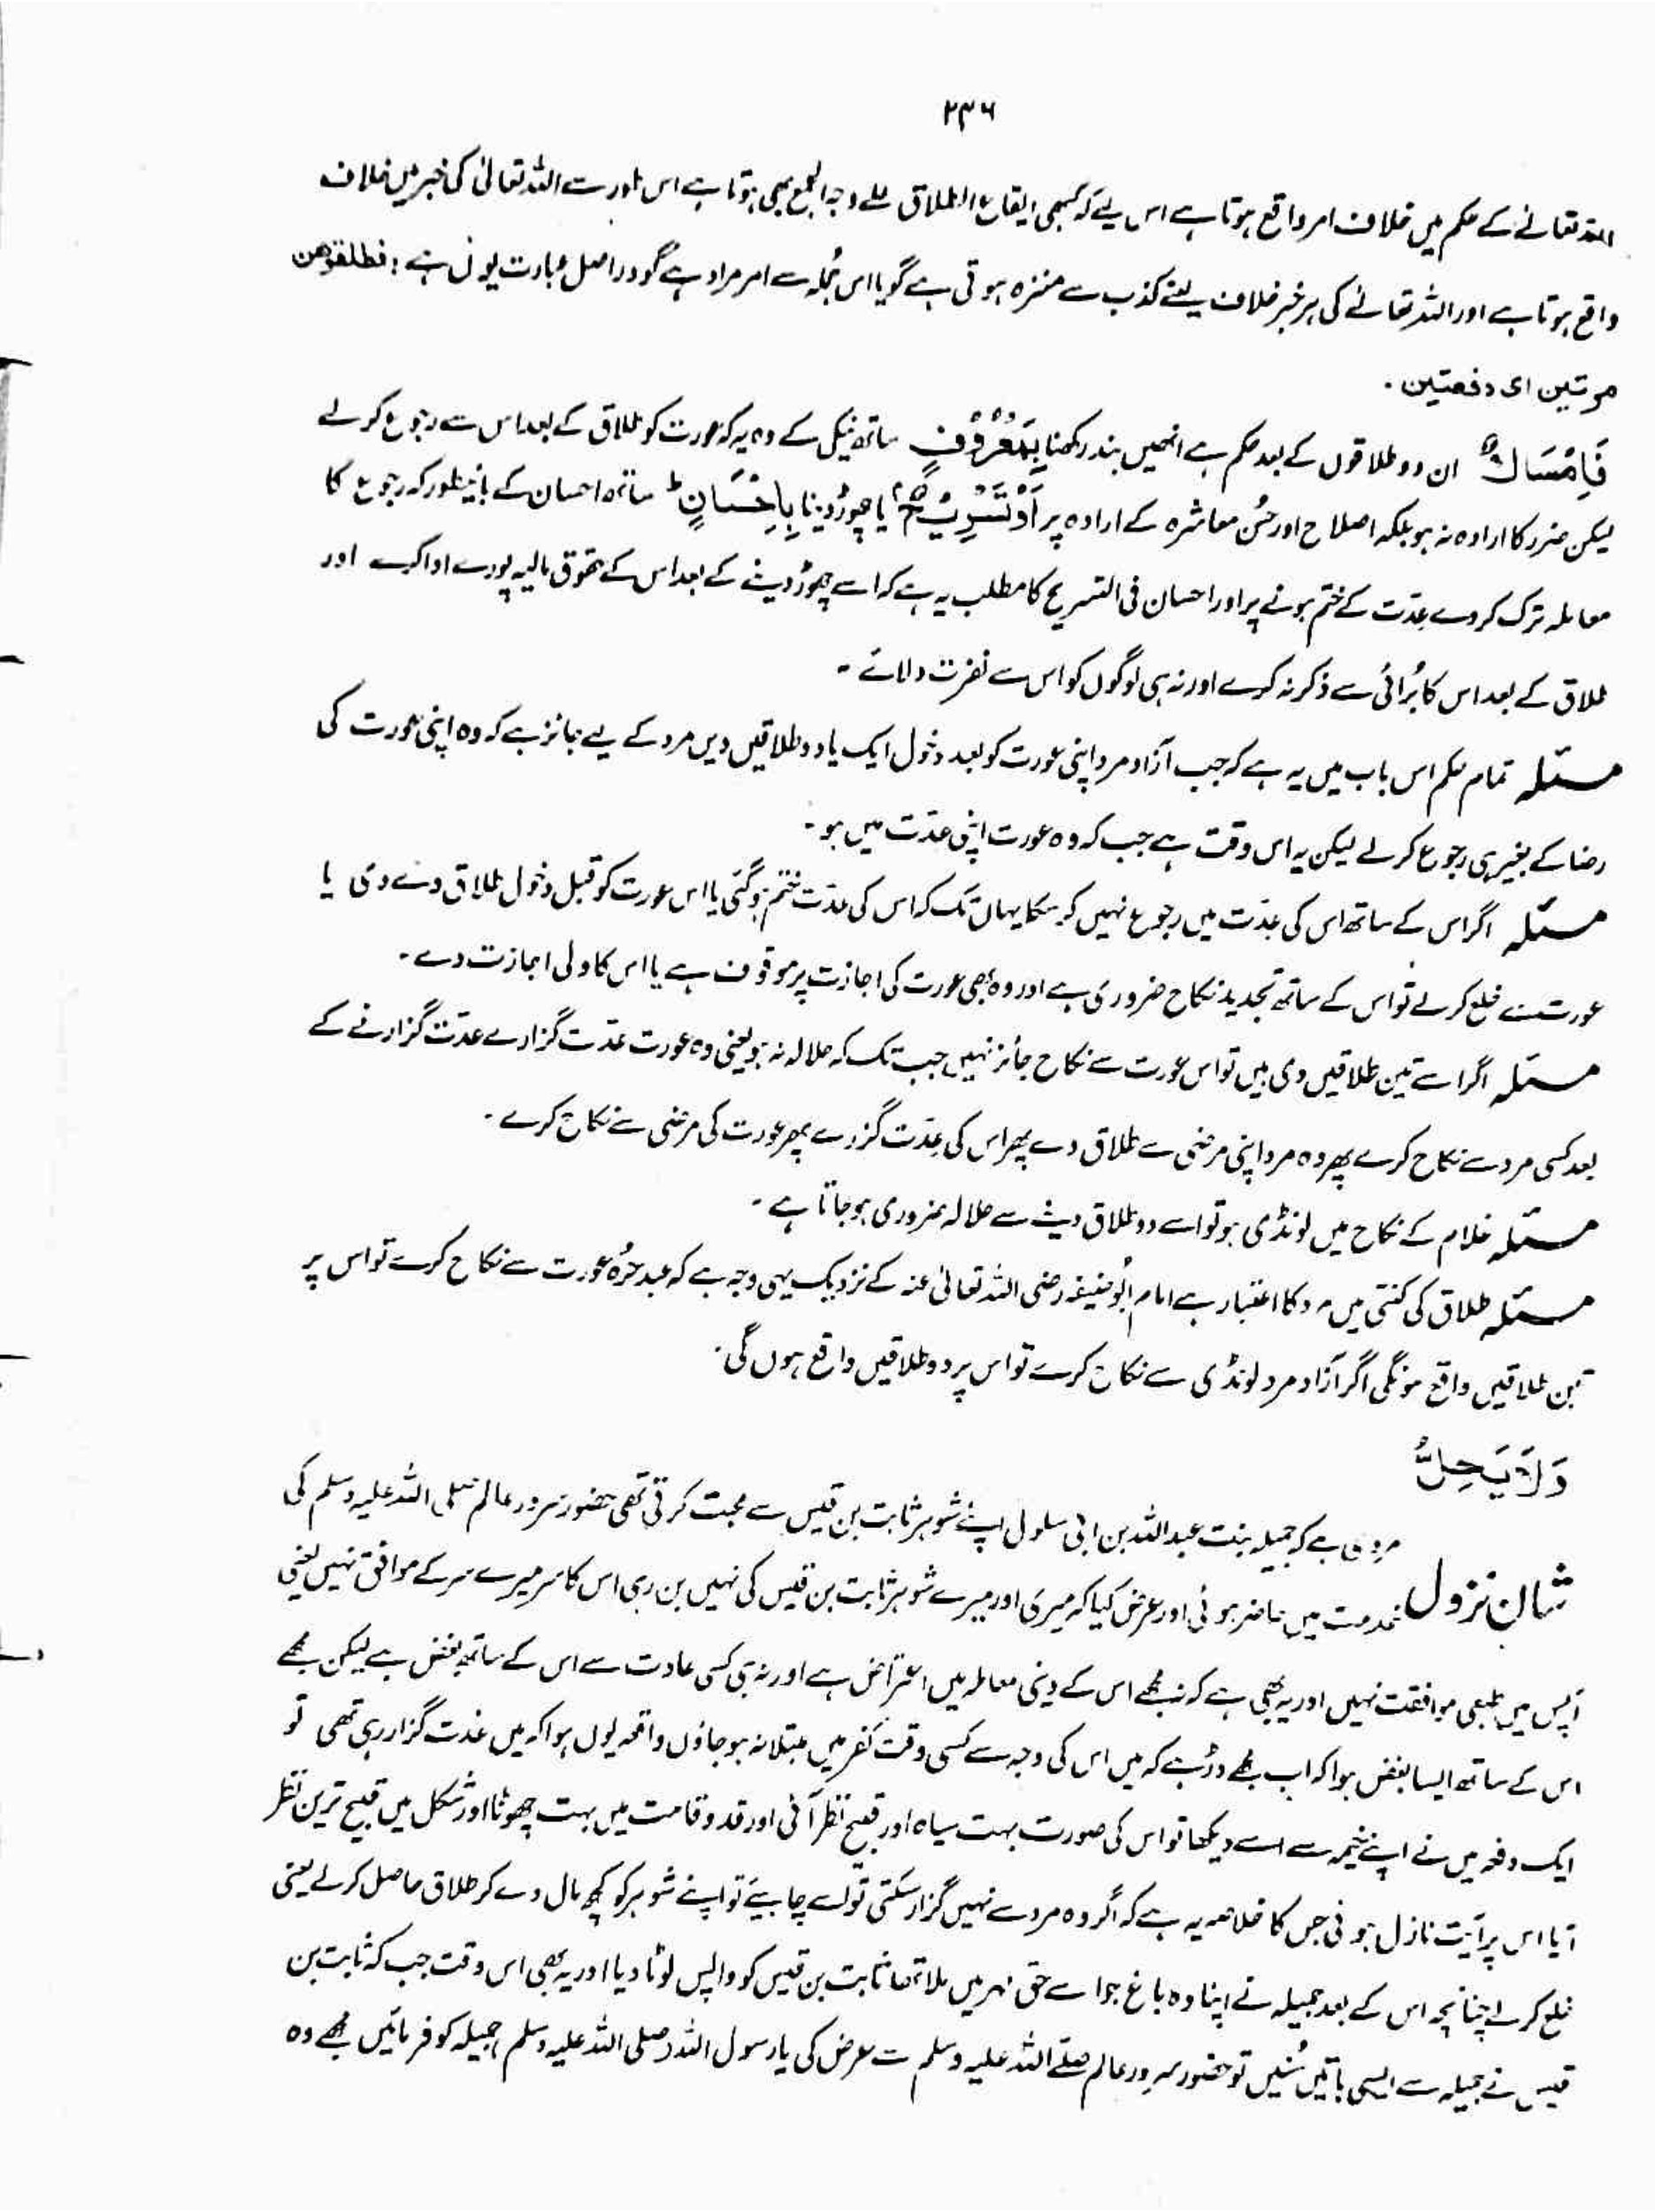 ۲۳۶
اللہ تعالےٰ کے حکم میں خلاف امر واقع ہوتا ہے اس لیے کہ کبھی ایقاع الطلاق علے وجہ الجمع بھی ہوتا ہے اس طور سے اللہ تعالیٰ کی خبر میں خلاف
واقع ہوتا ہے اور اللہ تعالےٰ کی ہر خبر خلاف یعنے کذب سے منزہ ہوتی ہے گویا اس جُملہ سے امر مراد ہے گو دراصل عبارت یوں ہے : فطلقوھن
مرتین ای دفعتین ۔
فَاِمْسَاكٌۢ ان دو طلاقوں کے بعد حکم ہے انھیں بند رکھنا بِمَعْرُوْفٍ ساتھ نیکی کے وہ یہ کہ عورت کو طلاق کے بعد اس سے رجوع کرلے
لیکن ضرر کا ارادہ نہ ہو بلکہ اصلاح اور حُسن معاشرہ کے ارادہ پر اَوْ تَسْرِیْحٌۢ یا چھوڑ دینا بِاِحْسَانٍ ؕ ساتھ احسان کے بایںطور کہ رجوع کا
معاملہ ترک کردے عِدّت کے ختم ہونے پر اور احسان فی التسریح کا مطلب یہ ہے کہ اسے چھوڑ دینے کے بعد اس کے حقوق مالیہ پورے ادا کرے اور
طلاق کے بعد اس کا بُرائی سے ذکر نہ کرے اور نہ ہی لوگوں کو اس سے نفرت دلائے ۔
مسئلہ تمام حکم اس باب میں یہ ہے کہ جب آزاد مرد اپنی عورت کو بعد دخول ایک یا دو طلاقیں دیں مرد کے لیے جائز ہے کہ وہ اپنی عورت کی
رضا کے بغیر ہی رجوع کرلے لیکن یہ اس وقت ہے جب کہ وہ عورت اپنی عدّت میں ہو ۔
مسئلہ اگر اس کے ساتھ اس کی عِدّت میں رجوع نہیں کرسکا یہاں تک کہ اس کی عدّت ختم ہوگئی یا اس عورت کو قبل دخول طلاق دے دی یا
عورت سے خلع کرلے تو اس کے ساتھ تجدید نکاح ضروری ہے اور وہ بھی عورت کی اجازت پر موقوف ہے یا اس کا ولی اجازت دے ۔
مسئلہ اگر اسے تین طلاقیں دی ہیں تو اس عورت سے نکاح جائز نہیں جب تک کہ حلالہ نہ ہو یعنی وہ عورت عدّت گزارے عدّت گزارنے کے
بعد کسی مرد سے نکاح کرے پھر وہ مرد اپنی مرضی سے طلاق دے پھر اس کی عِدّت گزرے پھر عورت کی مرضی سے نکاح کرے ۔
مسئلہ غلام کے نکاح میں لونڈی ہو تو اسے دو طلاق دینے سے حلالہ ضروری ہوجاتا ہے ۔
مسئلہ طلاق کی گنتی میں مرد کا اعتبار ہے امام ابُوحنیفہ رضی اللہ تعالیٰ عنہ کے نزدیک یہی وجہ ہے کہ عبد حُرّہ عورت سے نکاح کرے تو اس پر
تین طلاقیں واقع ہونگی اگر آزاد مرد لونڈی سے نکاح کرے تو اس پر دو طلاقیں واقع ہوں گی ۔
وَلَا یَحِلُّ
شانِ نزول مروی ہے کہ جمیلہ بنت عبداللہ بن ابی سلول اپنے شوہر ثابت بن قیس سے محبت کرتی تھی حضور سرور عالم صلی اللہ علیہ وسلم کی
خدمت میں حاضر ہوئی اور عرض کیا کہ میری اور میرے شوہر ثابت بن قیس کی نہیں بن رہی اس کا سر میرے سر کے موافق نہیں یعنی
آپس میں طبعی موافقت نہیں اور یہ بھی ہے کہ نہ مجھے اس کے دینی معاملہ میں اعتراض ہے اور نہ ہی کسی عادت سے اس کے ساتھ بغض ہے لیکن مجھے
اس کے ساتھ ایسا بغض ہوا کہ اب مجھے ڈر ہے کہ میں اس کی وجہ سے کسی وقت کفر میں مبتلا نہ ہوجاؤں واقعہ یوں ہوا کہ میں عدت گزار رہی تھی تو
ایک دفعہ میں نے اپنے خیمہ سے اسے دیکھا تو اس کی صورت بہت سیاہ اور قبیح نظر آئی اور قد و قامت میں بہت چھوٹا اور شکل میں قبیح ترین نظر
آیا اس پر آیت نازل ہوئی جس کا خلاصہ یہ ہے کہ اگر وہ مرد سے نہیں گزار سکتی تو اسے چاہیے تو اپنے شوہر کو کچھ مال دے کر طلاق حاصل کرلے یعنی
خلع کرلے چنانچہ اس کے بعد جمیلہ نے اپنا وہ باغ جو اسے حق مہر میں ملا تھا ثابت بن قیس کو واپس لوٹا دیا اور یہ بھی اس وقت جب کہ ثابت بن
قیس نے جمیلہ سے ایسی باتیں سُنیں تو حضور سرور عالم صلے اللہ علیہ وسلم سے عرض کی یا رسول اللہ (صلی اللہ علیہ وسلم) جمیلہ کو فرمائیں مجھے وہ